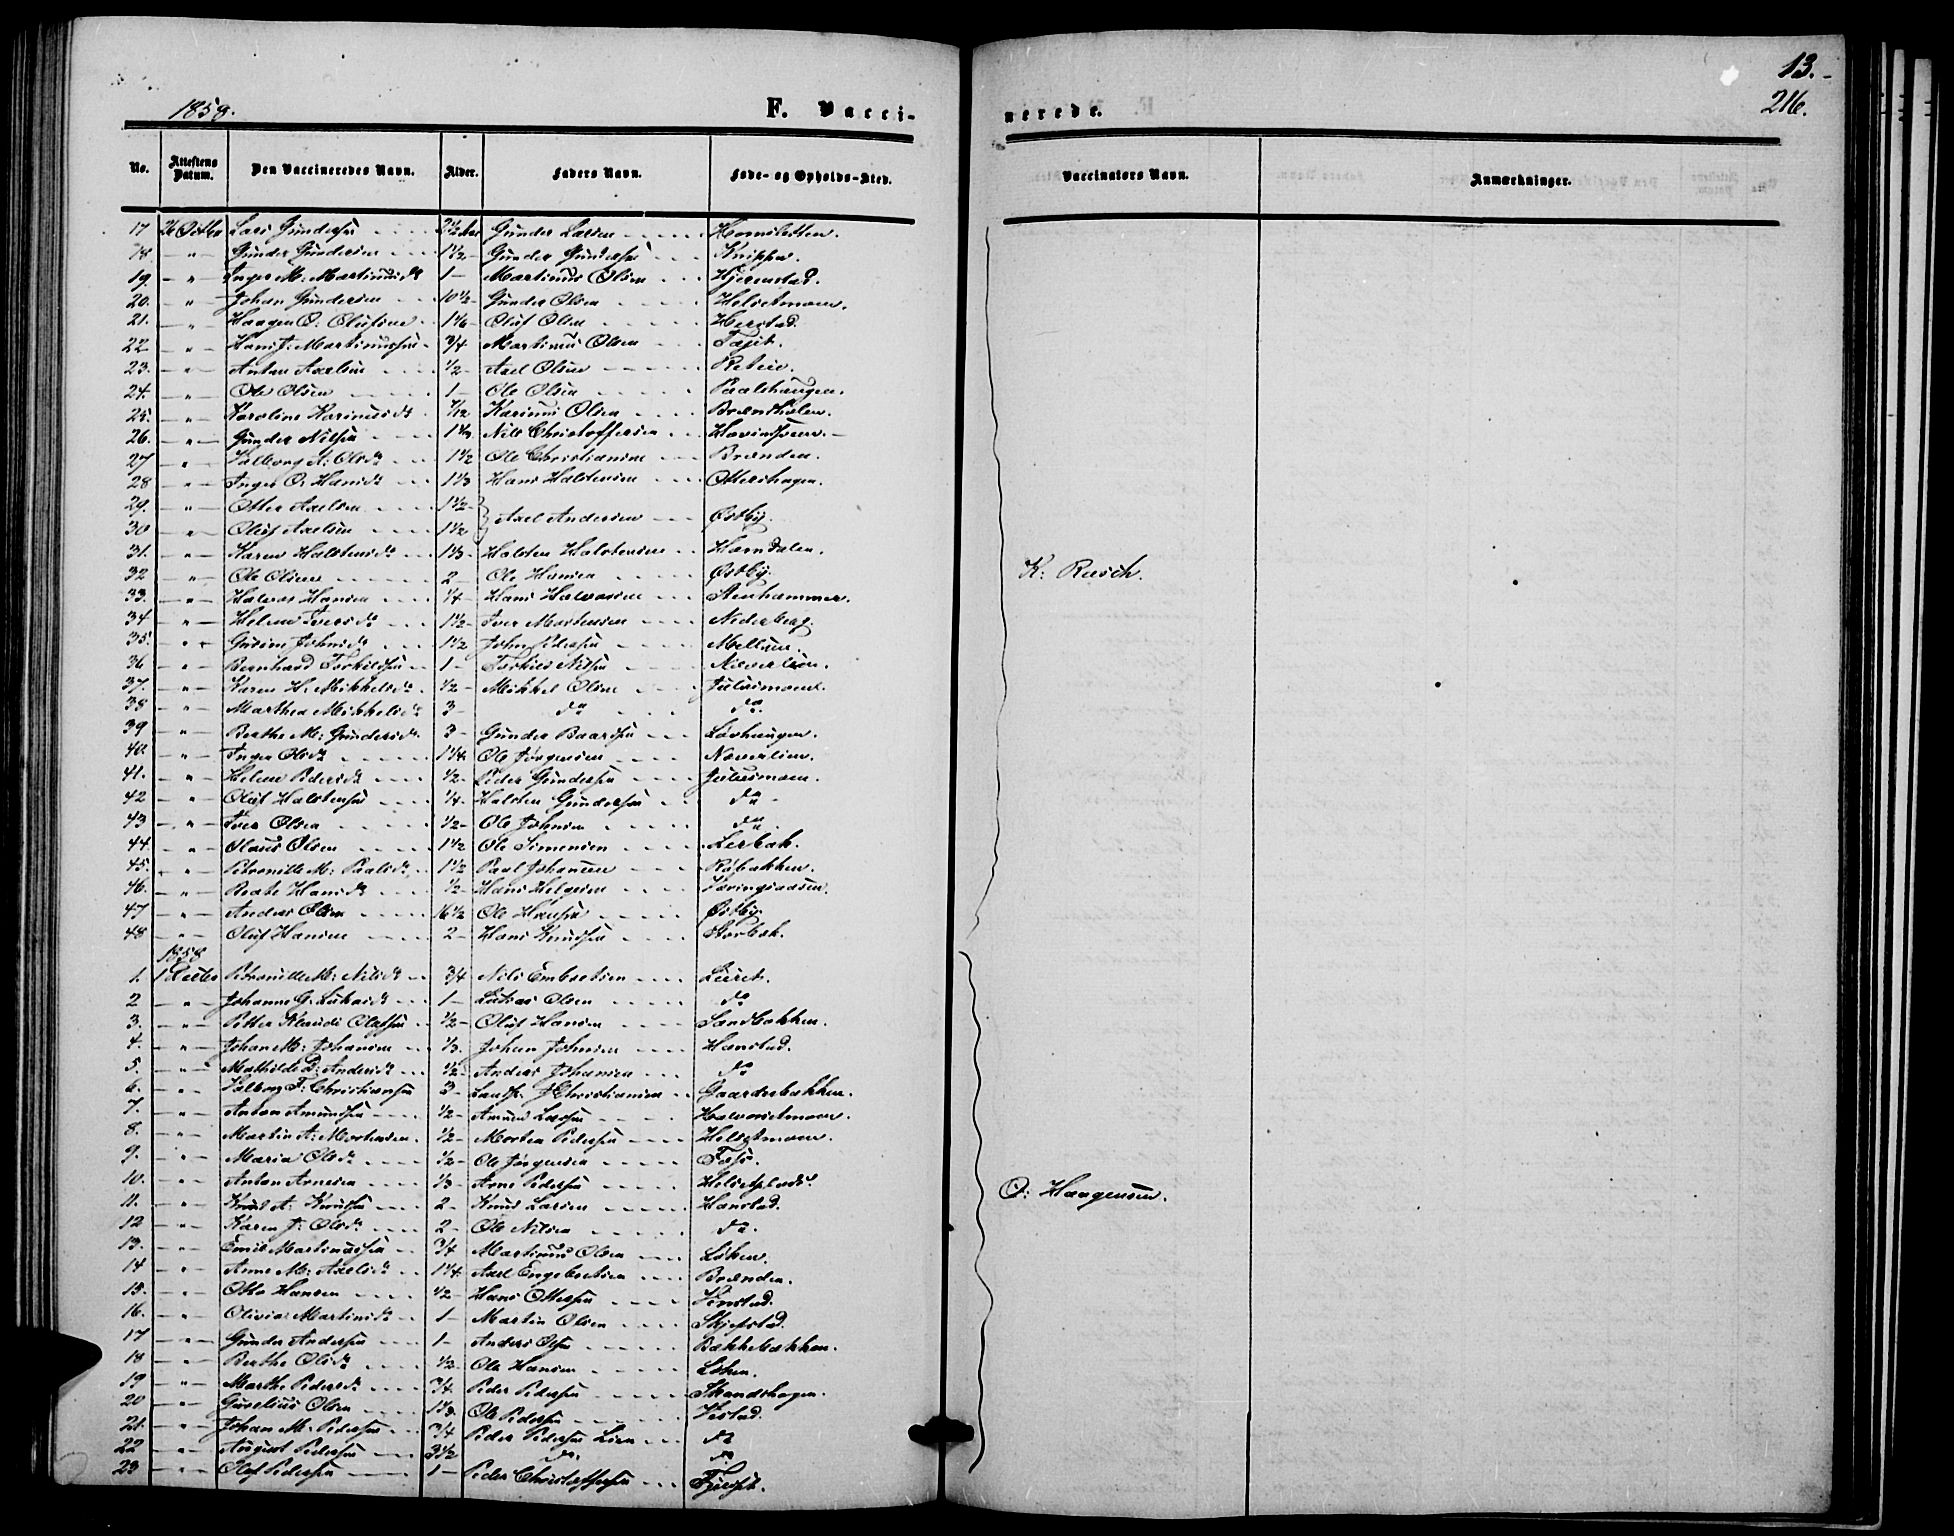 13.
216.
1858.
F. Vaccinerede.
No. Attestens Datum. Den Vaccineredes Navn. Alder. Faders Navn. Føde- og Opholds-Sted. Vaccinators Navn. Anmærkninger.
17 26 Octbr Lars Gundersen 2½ Aar Gunder Larsen
18 " Gunder Gundersen 1½ Gunder Gundersen Knippa.
19. " Inger M. Martinusdr 1 Martinus Olsen Hjerenstad.
20. " Johan Gundersen 10½ Gunder Olsen Helsetmoen.
21. " Haagen O. Olufsen Oluf Olsen Herstad.
22 " Hans J. Martinussen ¾ Martinus Olsen
23. " Anton Axelsen ½ Axel Olsen
24. " Ole Olsen 1 Ole Olsen Paalshaugen.
25. " Karoline Karinusdr 7/12 Karinus Olsen
26. " Gunder Nilsen Nils Christoffersen
27 " Valborg A. Olsdr 1½ Ole Christiansen Brænden.
28 " Inger O. Hansdr 1⅓ Hans Halstensen Ottershagen.
29. " Otter Axelsen 1½ Axel Andersen Østby.
30 " Oluf Axelsen 1½
31. " Karen Halstensdr 1⅓ Halsten Halstensen Hærndalen.
32 " Ole Olsen 2 Ole Hansen Østby.
33. " Halvor Hansen ¼ Hans Halvorsen Stenhammer.
34 " Helene Iversdr 1½ Iver Mortensen Nederberg.
35. " Gurine Johnsdr 1½ John Pedersen Mellum.
36 " Bernhard Torkildsen 1 Torkild Nilsen Næverlien.
37. " Karen H. Mikkelsdr ½ Mikkel Olsen Julusmoen.
38 " Marthea Mikkelsdr 3 do do.
39 " Berthe M. Gundersdr 3 Gunder Baardsen Løvhaugen.
40. " Inger Olsdr 1¼ Ole Jørgensen Næverlien.
41. " Helene Pedersdr ½ Peder Gundersen Julusmoen.
42 " Oluf Halstensen ¼ Halsten Gundersen do
43 " Iver Olsen ½ Ole Johnsen do
44. " Olaus Olsen 1½ Ole Simensen Lerbak.
45. " Petronille M. Paulsdr 1½ Paul Johansen Røbakken.
46. " Beate Hansdr ½ Hans Helgesen
47 " Anders Olsen 16½ Ole Hansen Østby.
48 " Oluf Hansen 2 Hans Knudsen Storbak.
K: Rusch.
1858
1. 1 Petronille M. Nilsdr ¾ Nils Embretsen
2 " Johanne G. Lukasdr 1 Lukas Olsen do
3. " Petter Olufsen ½ Oluf Hansen Sandbakken.
4. " Johan M. Johansen ⅓ Johan Johnsen Hanstad.
5. " Mathilde D. Andersdr ½ Anders Johansen do
6. " Valborg F. Christiansen 3 Christiansen Gaarderbakken.
7. " Anton Amundsen ½ Amund Larsen Halvorsetmoen.
8. " Martin A. Mortensen ½ Morten Pedersen Helsetmoen.
9. " Maria Olsdr ½ Ole Jørgensen
10. " Anton Arnesen ⅓ Arne Pedersen Helsetplads.
11. " Knud A. Knudsen 2 Knud Larsen Hanstad.
12 " Karen J. Olsdr 2 Ole Nilsen do.
13. " Emil Martinussen ¾ Martinus Olsen Løken.
14 " Anne M. Axelsdr 1¼ Axel Engebretsen Brænden.
15. " Otto Hansen ½ Hans Ottersen
16. " Olivia Martinsdr 1 Martin Olsen Skjefstad.
17 " Gunder Andersen 1 Anders Olsen Bækkebakken.
18 " Berthe Olsdr ½ Ole Hansen Løken.
19 " Marthe Pedersdr ¾ Peder Pedersen Strandshagen.
20 " Olsen 1⅓ Ole Pedersen Vestad.
21. " Johan M. Pedersen ¾ Peder Pedersen Lien do
22 " August Pedersen 3½ do. do
23 " Oluf Pedersen 1 Peder Christoffersen
O: Haagensen.